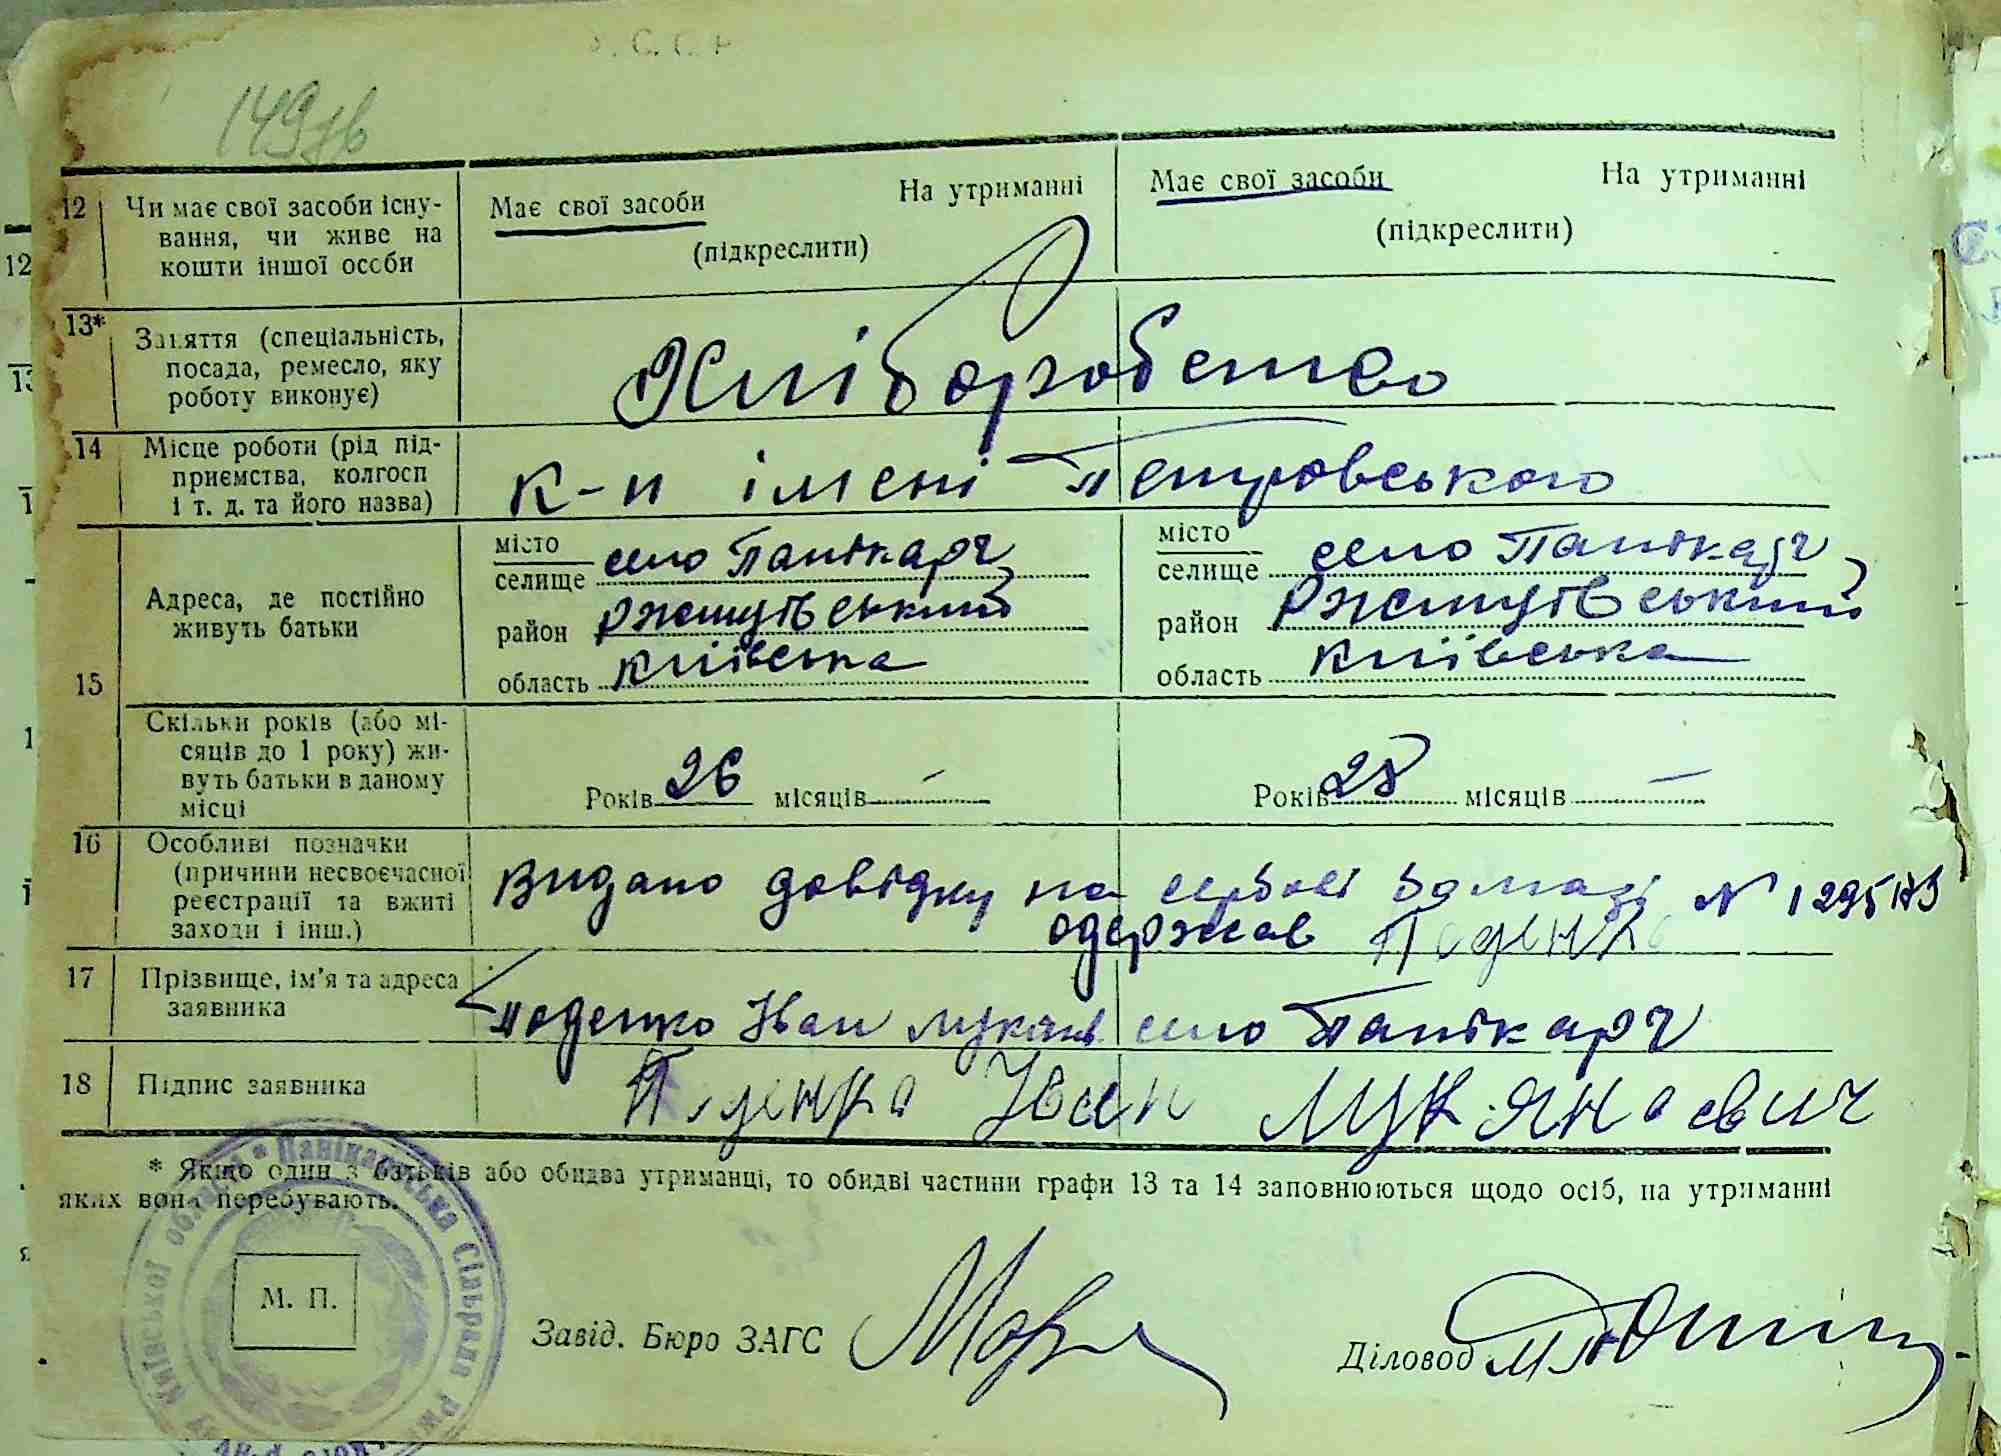 149зв
12 Чи має свої засоби існу-
вання, чи живе на
кошти іншої особи
Має свої засоби На утриманні
(підкреслити)
Має свої засоби На утриманні
(підкреслити)
13* Заняття (спеціальність,
посада, ремесло, яку
роботу виконує)
Хліборобство
14 Місце роботи (рід під-
приємства, колгосп
і т. д. та його назва)
к-п імені Петровського
15 Адреса, де постійно
живуть батьки
місто
селище село Панікарч
район Ржищівський
область Київська
місто
селище село Панікарч
район Ржищівський
область Київська
Скільки років (або мі-
сяців до 1 року) жи-
вуть батьки в даному
місці
Років 26 місяців —
Років 28 місяців —
16 Особливі позначки
(причини несвоєчасної
реєстрації та вжиті
заходи і інш.)
Видано довідку на N 1295173
одержав Поденко
17 Прізвище, ім'я та адреса
заявника
Поденко Іван Лукян. село Панікарч
18 Підпис заявника
Поденко Іван Лук'янович
* Якщо один з батьків або обидва утриманці, то обидві частини графи 13 та 14 заповнюються щодо осіб, на утриманні
яких вони перебувають.
Панікарська Сільрада Рж
Київської області
М. П.
Завід. Бюро ЗАГС
Діловод